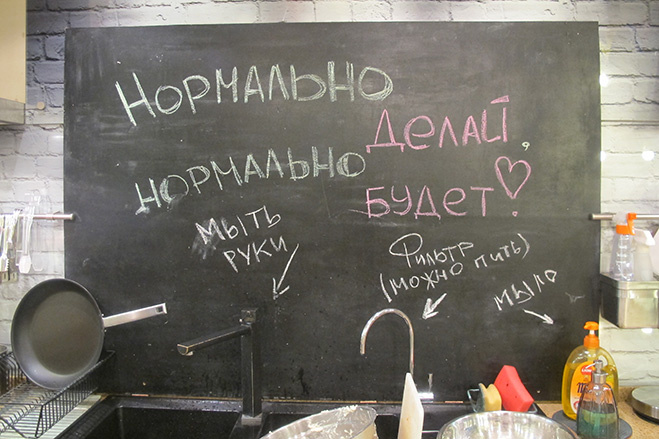 НОРМАЛЬНО ДЕЛАЙ,
НОРМАЛЬНО БУДЕТ!
МЫТЬ
РУКИ
ФИЛЬТР
(МОЖНО ПИТЬ)
МЫЛО